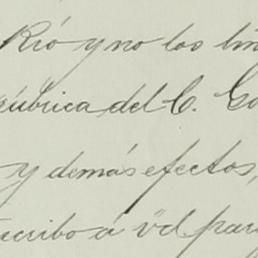 Rio y no los lin
rúbrica del C. Go
y demás efectos,
scribo á vd par